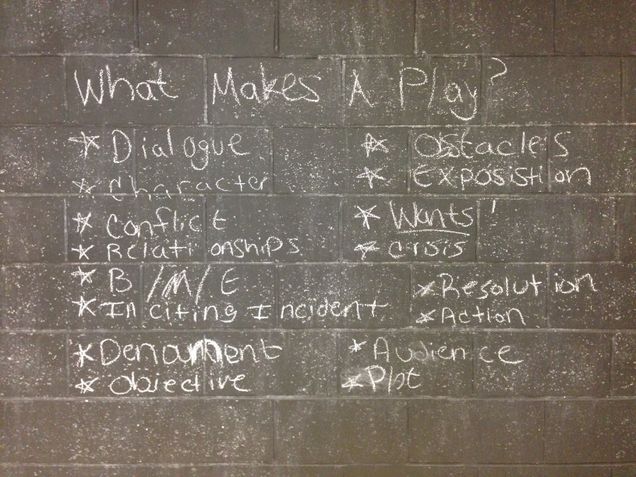 What Makes A Play?
* Dialogue
* Character
* Conflict
* Relationships
* B/M/E
* Inciting Incident
* Denoument
* Objective
* Obstacles
* Exposistion
* Wants!
* Crisis
* Resolution
* Action
* Audience
* Plot